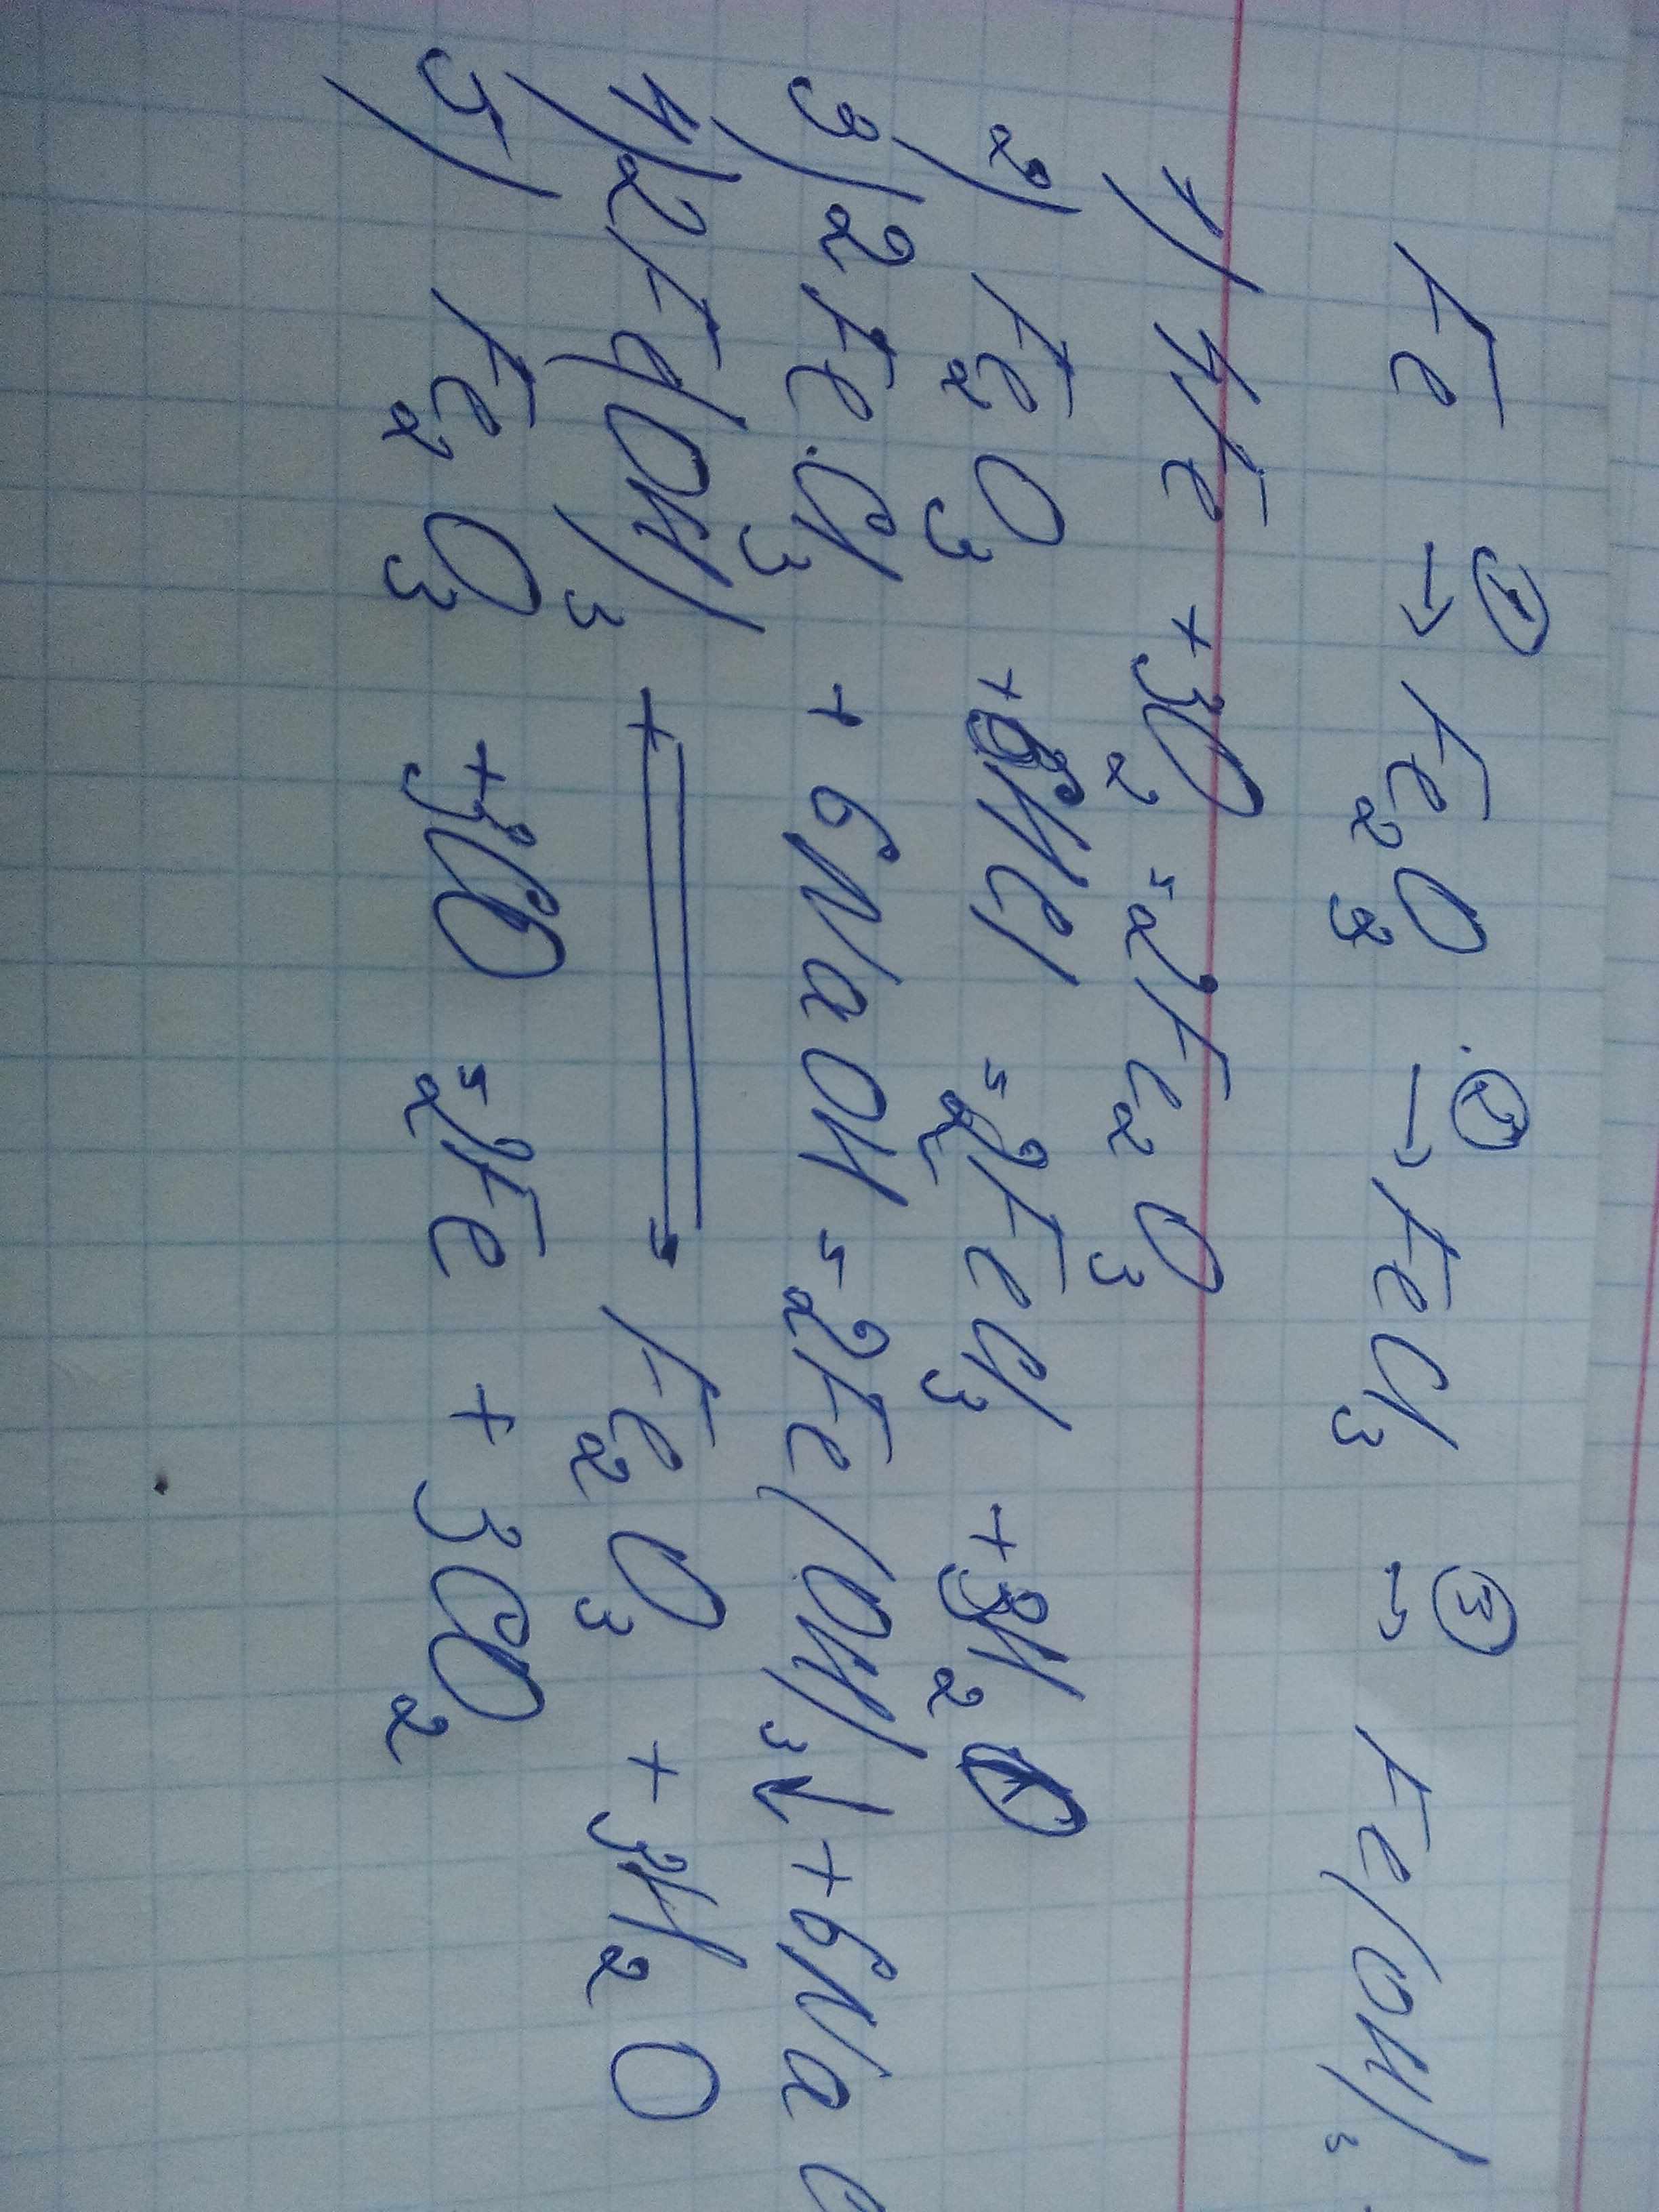 Fe →① Fe₂O₃ →② FeCl₃ →③ Fe(OH)₃
1) 4Fe + 3O₂ = 2Fe₂O₃
2) Fe₂O₃ + 6HCl = 2FeCl₃ + 3H₂O
3) 2FeCl₃ + 6NaOH = 2Fe(OH)₃↓ + 6NaC
4) 2Fe(OH)₃ → Fe₂O₃ + 3H₂O
5) Fe₂O₃ + 3CO = 2Fe + 3CO₂